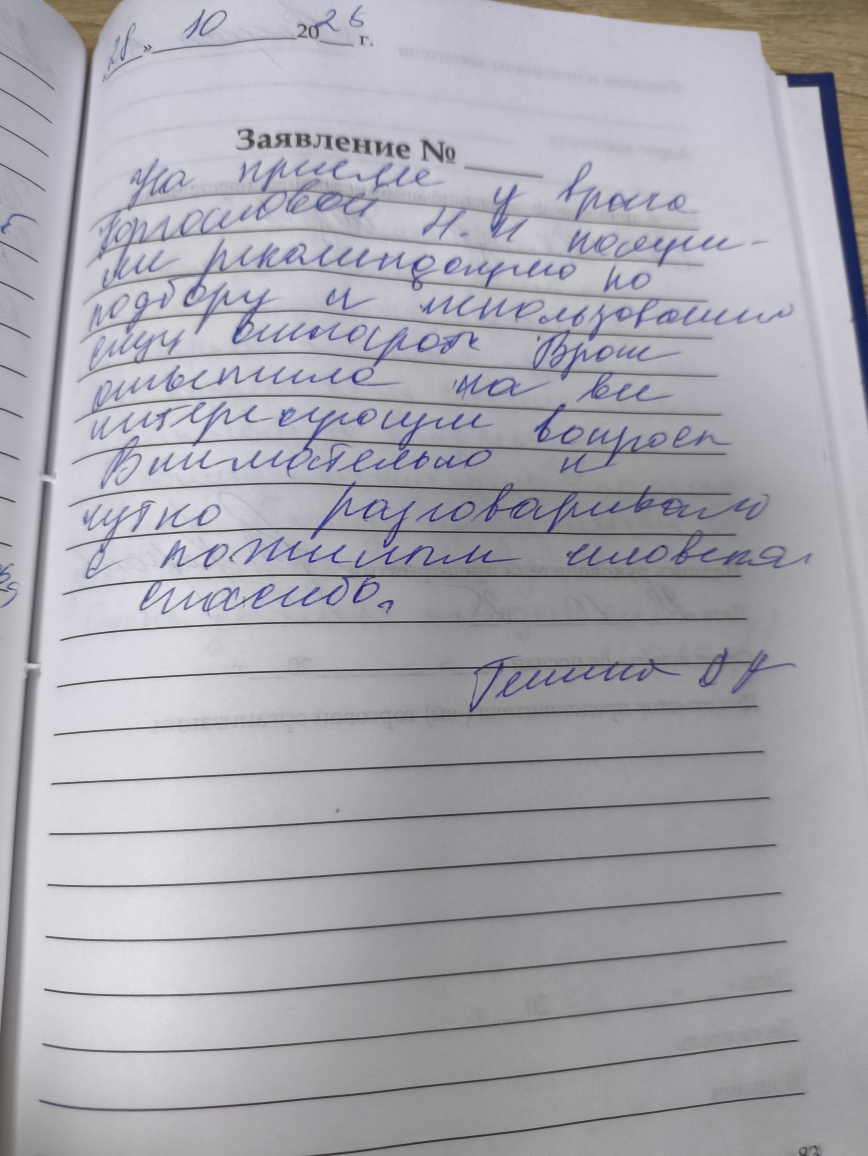 28 » 10 2026 г.
Заявление № ____
На приеме у врача
Н. И получи-
ли рекомендацию по
подбору и использованию
Врач
ответила на все
интересующим вопросы
Внимательно и
чутко разговаривало
с пожилым человеком
спасибо,
83